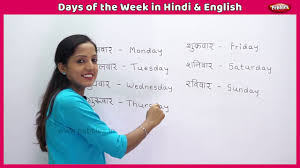 Days of the Week in Hindi & English
Pebbles
वार - Monday
लवार - Tuesday
वार - Wednesday
- Thursday
शुक्रवार - Friday
शनिवार - Saturday
रविवार - Sunday